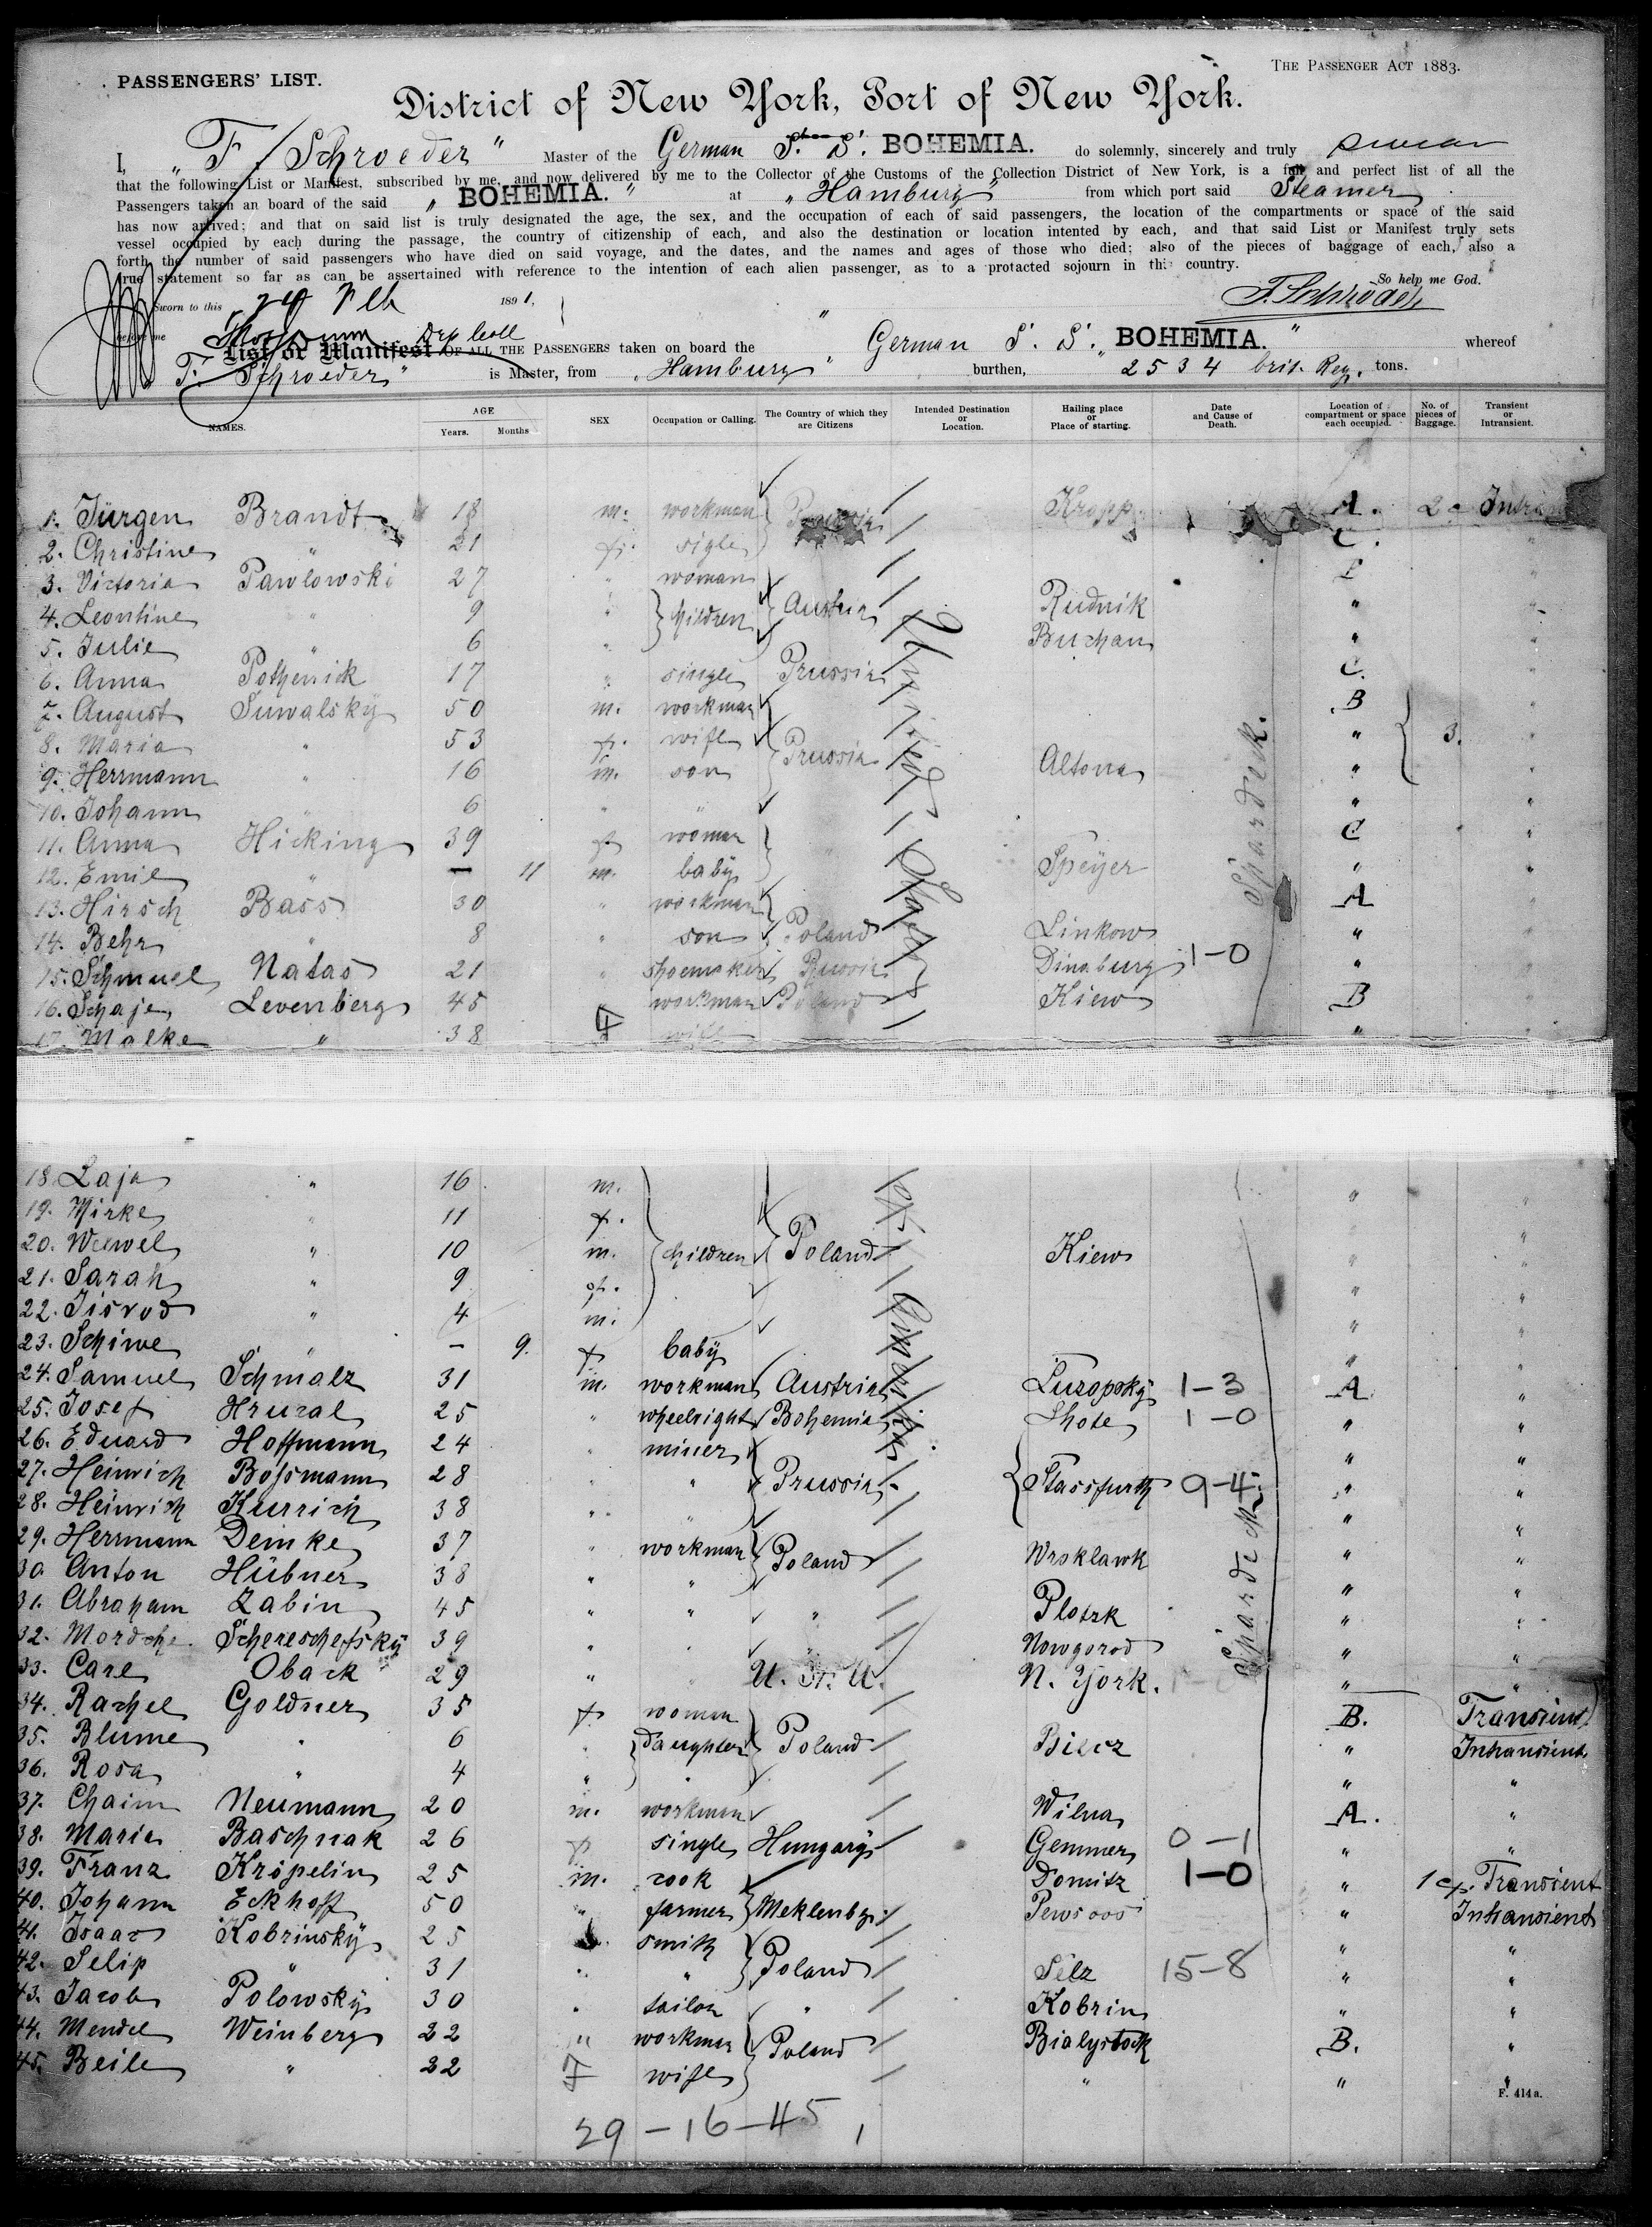 PASSENGERS' LIST.
THE PASSENGER ACT 1883.
District of New York, Port of New York.
I, "F. Schroeder" Master of the German S. S. BOHEMIA. do solemnly, sincerely and truly swear
that the following List or Manifest, subscribed by me, and now delivered by me to the Collector of the Customs of the Collection District of New York, is a full and perfect list of all the
Passengers taken an board of the said "BOHEMIA." at "Hamburg" from which port said Steamer
has now arrived; and that on said list is truly designated the age, the sex, and the occupation of each of said passengers, the location of the compartments or space of the said
vessel occupied by each during the passage, the country of citizenship of each, and also the destination or location intented by each, and that said List or Manifest truly sets
forth the number of said passengers who have died on said voyage, and the dates, and the names and ages of those who died; also of the pieces of baggage of each, also a
true statement so far as can be assertained with reference to the intention of each alien passenger, as to a protacted sojourn in this country.
So help me God.
Sworn to this 24 Feb 1891,
F. Schröder
before me
List or Manifest OF ALL THE PASSENGERS taken on board the German S. S. "BOHEMIA." whereof
F. Schroeder" is Master, from "Hamburg" burthen, 2534 brit. Reg. tons.
NAMES. AGE Years. Months SEX Occupation or Calling. The Country of which they are Citizens Intended Destination or Location. Hailing place or Place of starting. Date and Cause of Death. Location of compartment or space each occupied. No. of pieces of Baggage. Transient or Intransient.
1. Jürgen Brandt 18 m. workman Prussia Kropp A. 2
2. Christine " 21 f. sigle C.
3. Victoria Pawlowski 27 " woman
4. Leontine " 9 " children Austria Rudnik "
5. Julie " 6 " Buchan "
6. Anna Pothenick 17 " single Prussia C.
7. August Suwalsky 50 m. workman B
8. Maria " 53 f. wife Prussia " 3.
9. Herrmann " 16 m. son Altona "
10. Johann " 6 " " "
11. Anna Hicking 39 f. woman C
12. Emil " — 11 m. baby Speyer "
13. Hirsch Bass 30 " workman A
14. Behr " 8 " son Poland Linkow "
15. Schmuel Natas 21 " shoemaker Russia Dinaburg 1-0 "
16. Schaje Levenberg 45 " workman Poland Kiew B
17. Malke " 38 F wife "
18. Laja " 16 m. "
19. Mirke " 11 f. "
20. Wewel " 10 m. children Poland Kiew "
21. Sarah " 9 f. "
22. Jisrod " 4 m. "
23. Schiwe " — 9. f baby "
24. Samuel Schmalz 31 m. workman Austria 1-3 A
25. Josef Hruzal 25 " wheelright Bohemia Lhote 1-0 "
26. Eduard Hoffmann 24 " miner "
27. Heinrich Bossmann 28 " " Prussia Stassfurth 9-4 "
28. Heinrich Kurrich 38 " " "
29. Herrmann Demke 37 " workman Poland Wrsklawk "
30 Anton Hübner 38 " " "
31. Abraham Zabin 45 " " " Plotzk "
32. Mordche Schereschefsky 39 " " " Nowgorod "
33. Carl Oback 29 " " U. St. N. York. "
34. Rachel Goldner 35 f woman B. Transient
35. Blume " 6 " daughter Poland Bilcz " Intransient
36. Rosa " 4 " " " "
37. Chaim Neumann 20 m. workman Wilna A. "
38. Maria Baschnak 26 f single Hungary Gemmer 0-1 " "
39. Franz Kröpelin 25 m. cook Domitz 1-0 " 1 Transient
40. Johann Eckhoff 50 " farmer Meklenbg. " Intransient
41. Isaac Kobrinsky 25 smith " "
42. Selip " 31 " " Poland Selz 15-8 " "
43. Jacob Polowsky 30 " tailor " Kobrin " "
44. Mendel Weinberg 22 " workman Poland Bialystock B. "
45. Beile " 22 F wife " " "
F. 414a.
29-16-45